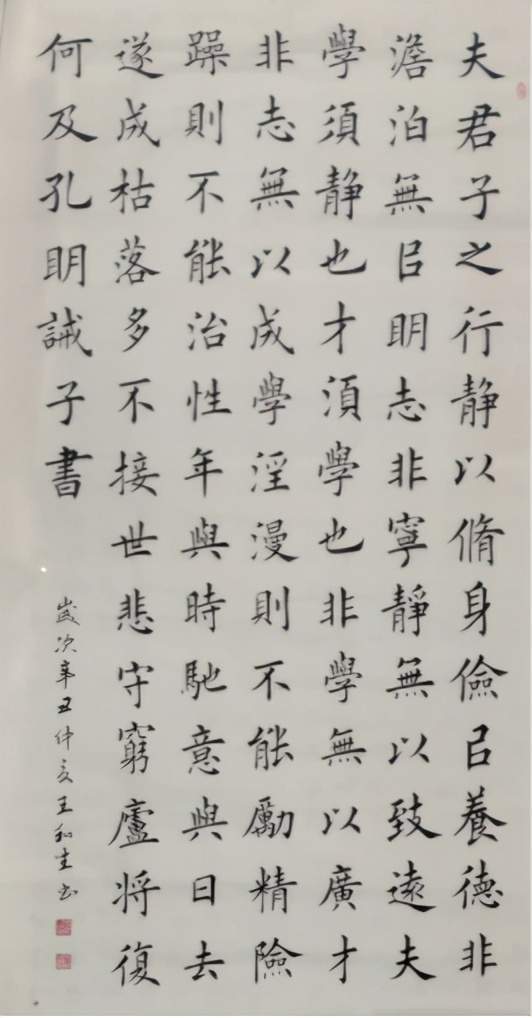 夫君子之行静以脩身儉㠯養德非
澹泊無㠯明志非寧静無以致遠夫
學須静也才須學也非學無以廣才
非志無以成學淫漫則不能勵精險
躁則不能治性年與時馳意與日去
遂成枯落多不接世悲守窮廬将復
何及孔明誡子書
歲次辛丑仲夏王和生书